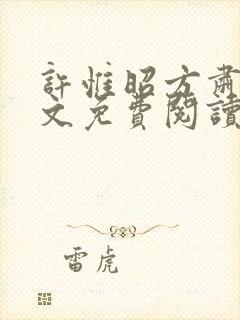 許惟昭方肅
文免費閱讀
雷虎